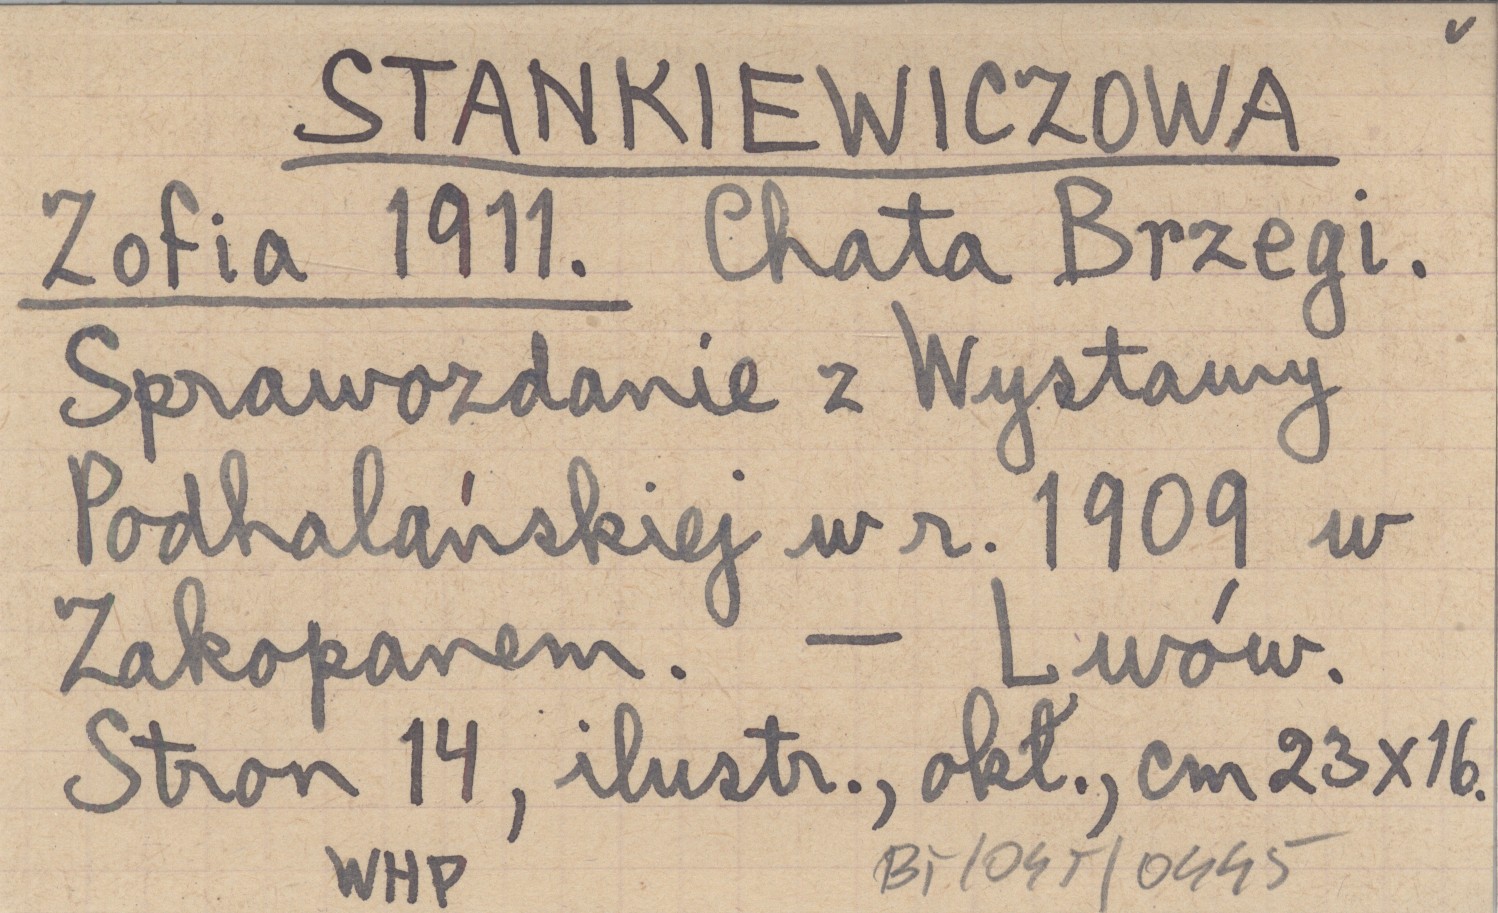 STANKIEWICZOWA
Zofia 1911. Chata Brzegi.
Sprawozdanie z Wystawy
Podhalańskiej w r. 1909 w
Zakopanem. — Lwów.
Stron 14, ilustr., okł., cm 23x16.
WHP